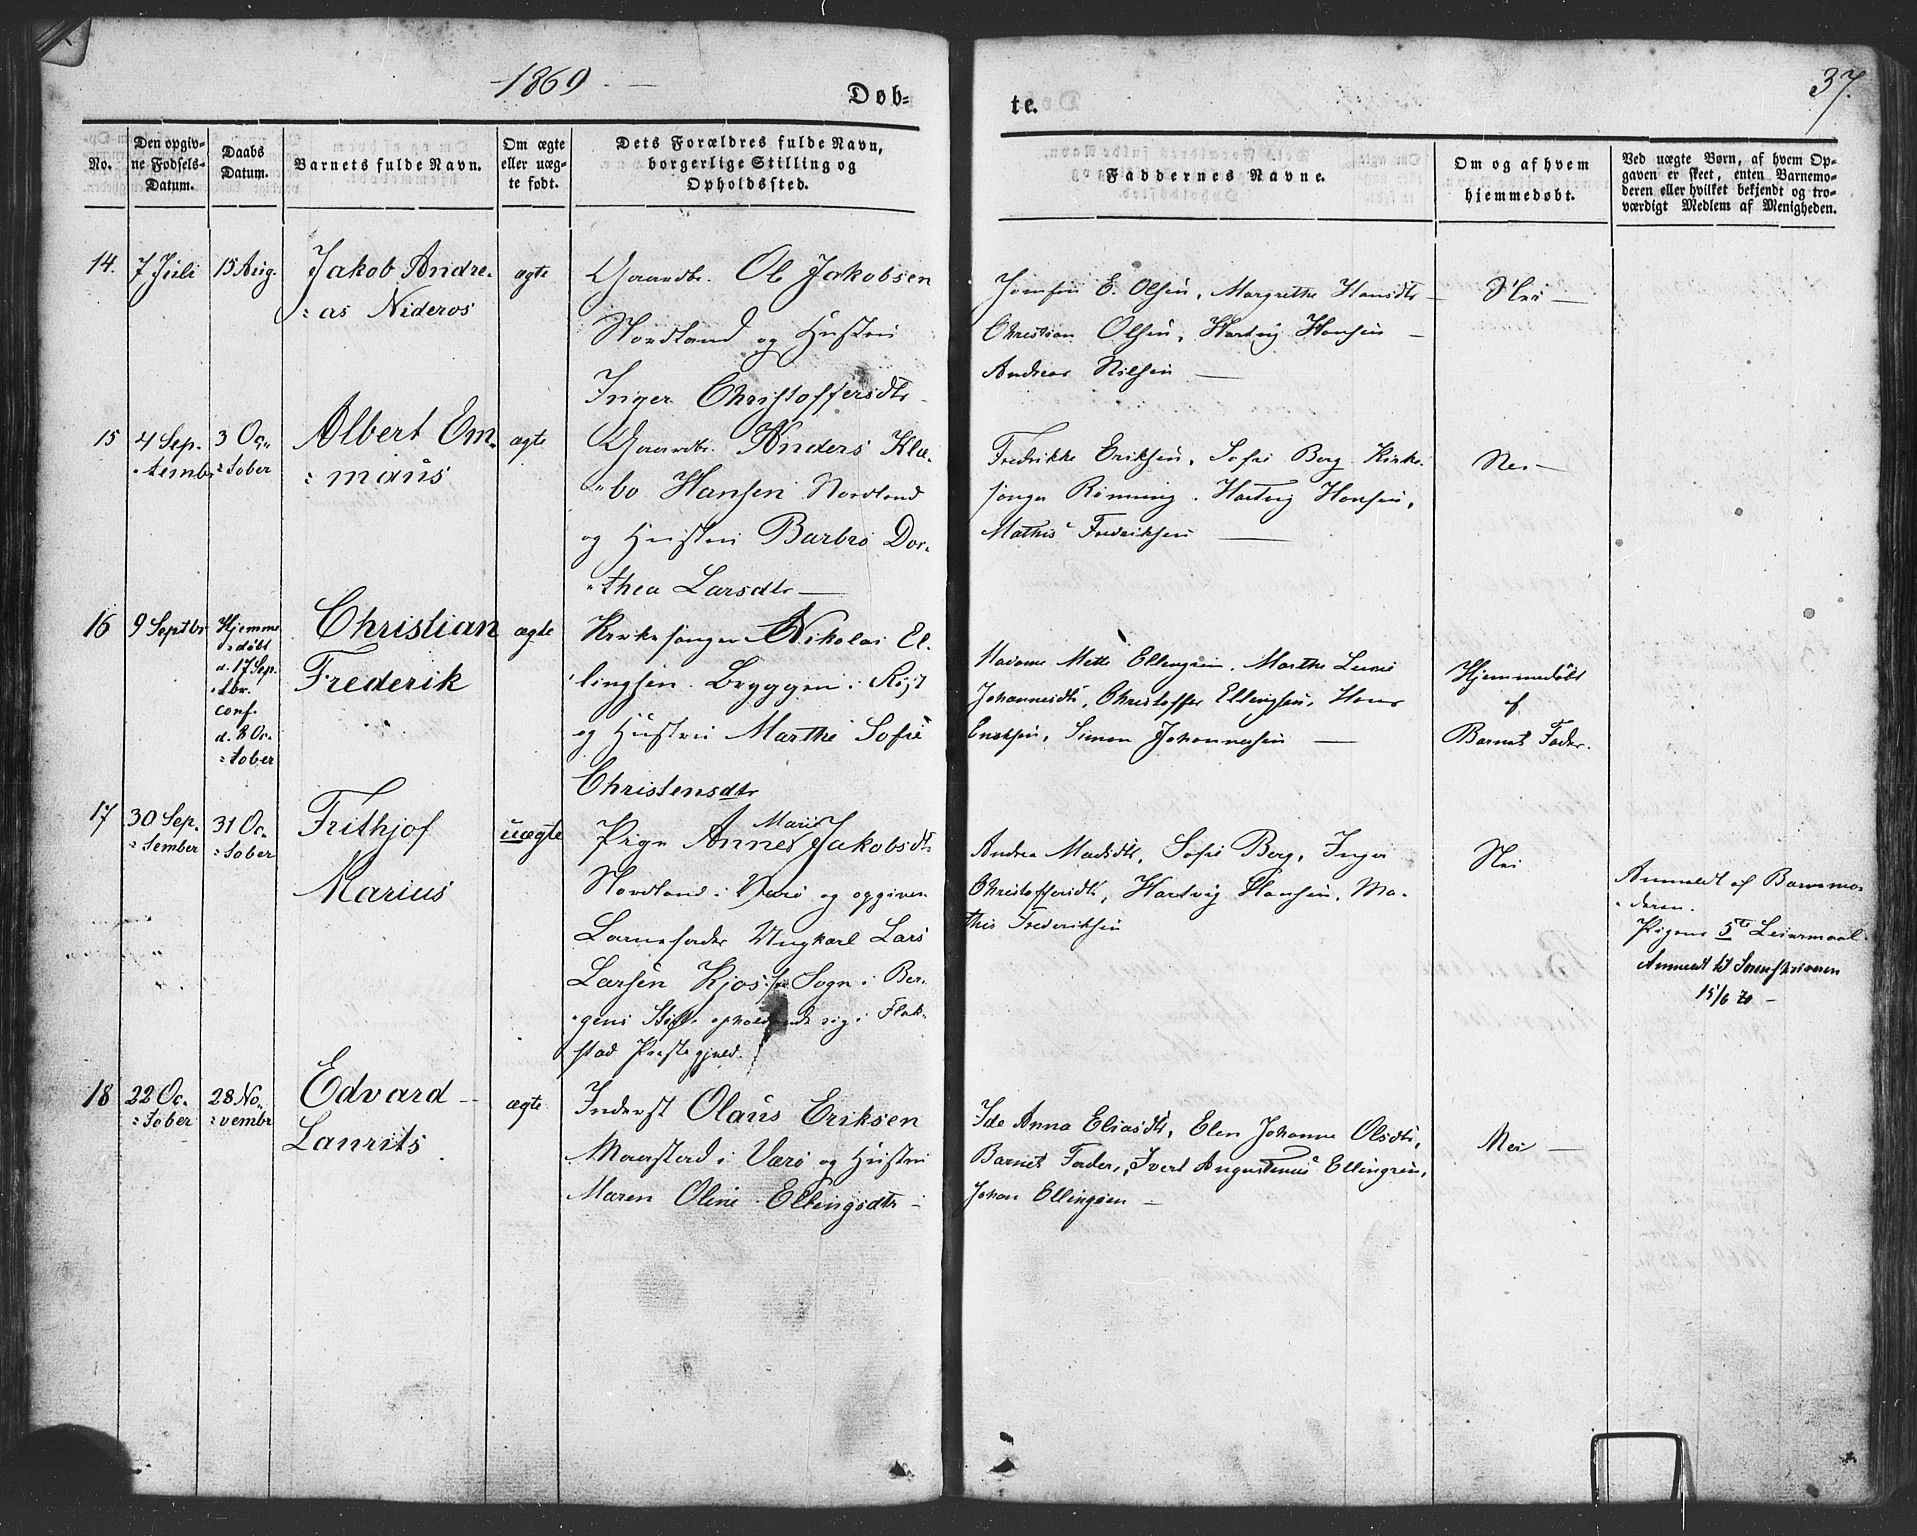 1869
Døb-
te.
37.
No.
Den opgiv-
ne Fødsels-
Datum.
Daabs
Datum.
Barnets fulde Navn.
Om ægte
eller uæg-
te født.
Dets Forældres fulde Navn,
borgerlige Stilling og
Opholdssted.
Faddernes Navne.
Om og af hvem
hjemmedøbt.
Ved uægte Børn, af hvem Op-
gaven er skeet, enten Barnemo-
deren eller hvilket bekjendt og tro-
værdigt Medlem af Menigheden.
14.
7 Juli
15 Aug.
Jakob Andre-
as Nideros
ægte
Gaardbr. Ole Jakobsen
Nordland og Hustru
Inger Christoffersdtr
E. Olsen, Margrethe Hansdtr
Christian Olsen, Hartvig Hansen
Andreas Nilsen
Nei
15
4 Sep-
tembr
3 Oc-
tober
Albert Em-
maus
ægte
Gaardbr. Anders Klæ-
bo Hansen Nordland
og Hustru Barbro Dor-
thea Larsdtr
Fredrikke Eriksen, Sofie Berg, Kirke-
sanger Rønning, Hartvig Hansen,
Mathis Fredriksen
Nei
16
9 Septbr
Hjemme
døbt
d. 17 Sep-
tbr.
conf.
d. 8 Oc-
tober
Christian
Frederik
ægte
Kirkesanger Nikolai El-
lingsen Byggen i Røst
og Hustru Marthe Sofie
Christensdtr
Madame Mette Ellingsen, Marthe
Johannesdtr, Christoffer Ellingsen, Hans
Enoksen, Simon Johannesen
Hjemmedøbt
af
Barnets Fader.
17
30 Sep-
tember
31 Oc-
tober
Frithjof
Marius
uægte
Pige Anne Marie Jakobsdtr
Nordland i Værø og opgiven
Barnefader Ungkarl Lars
Larsen Kjos fra Sogn i Ber-
gens Stift opholdende sig i Flak-
stad Præstegjæld.
Andrea Madsdtr, Sofie Berg, Inger
Christoffersdtr, Hartvig Hansen, Ma-
this Frederiksen
Nei
Anmeldt af Barnemo-
deren.
Pigens 5te Leiermaal
Anmeldt til Sorenskriveren
15/6 70
18
22 Oc-
tober
28 No-
vembr
Edvard
Laurits
ægte
Inderst Olaus Eriksen
Maarstad i Værø og Hustru
Maren Oline Ellingsdtr
Ide Anna Eliasdtr, Elen Johanna Olsdtr,
Barnets Fader, Ivert Augustinus Ellingsen,
Johan Ellingsen
Nei